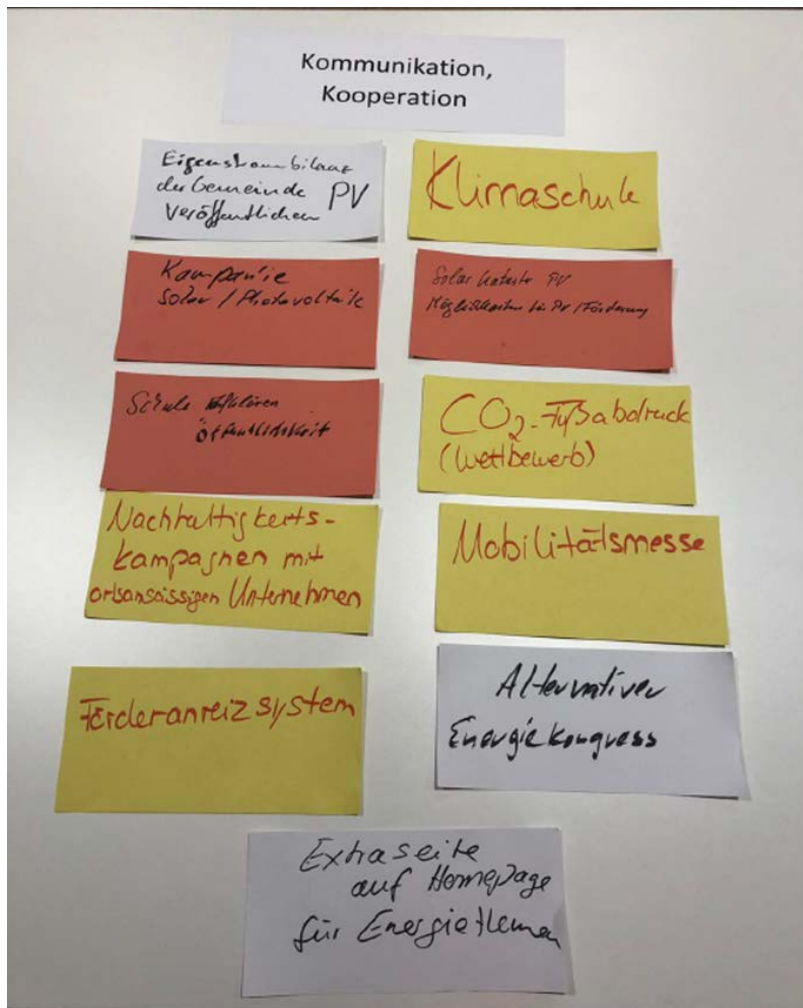 Kommunikation,
Kooperation
Eigenstrombilanz
der Gemeinde PV
veröffentlichen
Klimaschule
Kampanie
Solar / Photovoltaik
Solar kataster PV
Möglichkeiten für PV / Förderung
Schule
öffentlichkeit
CO₂-Fußabdruck
(Wettbewerb)
Nachhaltigkeits-
kampagnen mit
ortsansässigen Unternehmen
Mobilitätsmesse
Förderanreizsystem
Alternativer
Energiekongress
Extraseite
auf Homepage
für Energiethemen